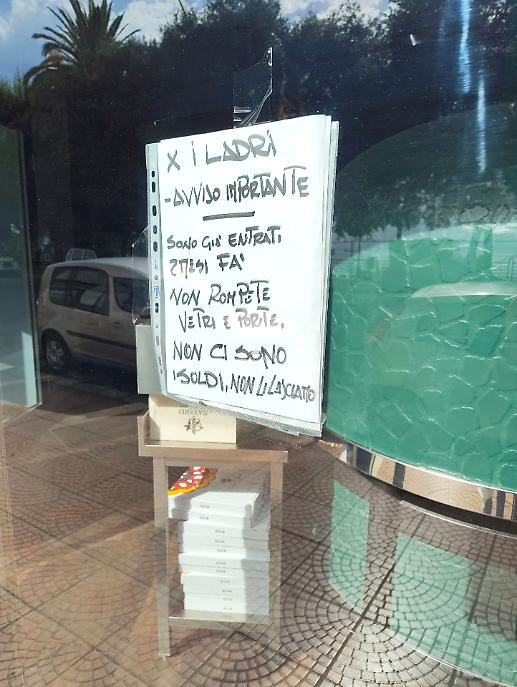 X I LADRI
- AVVISO IMPORTANTE
SONO GIÀ ENTRATI
2 MESI FA'
NON ROMPETE
VETRI E PORTE,
NON CI SONO
I SOLDI, NON LI LASCIATTO